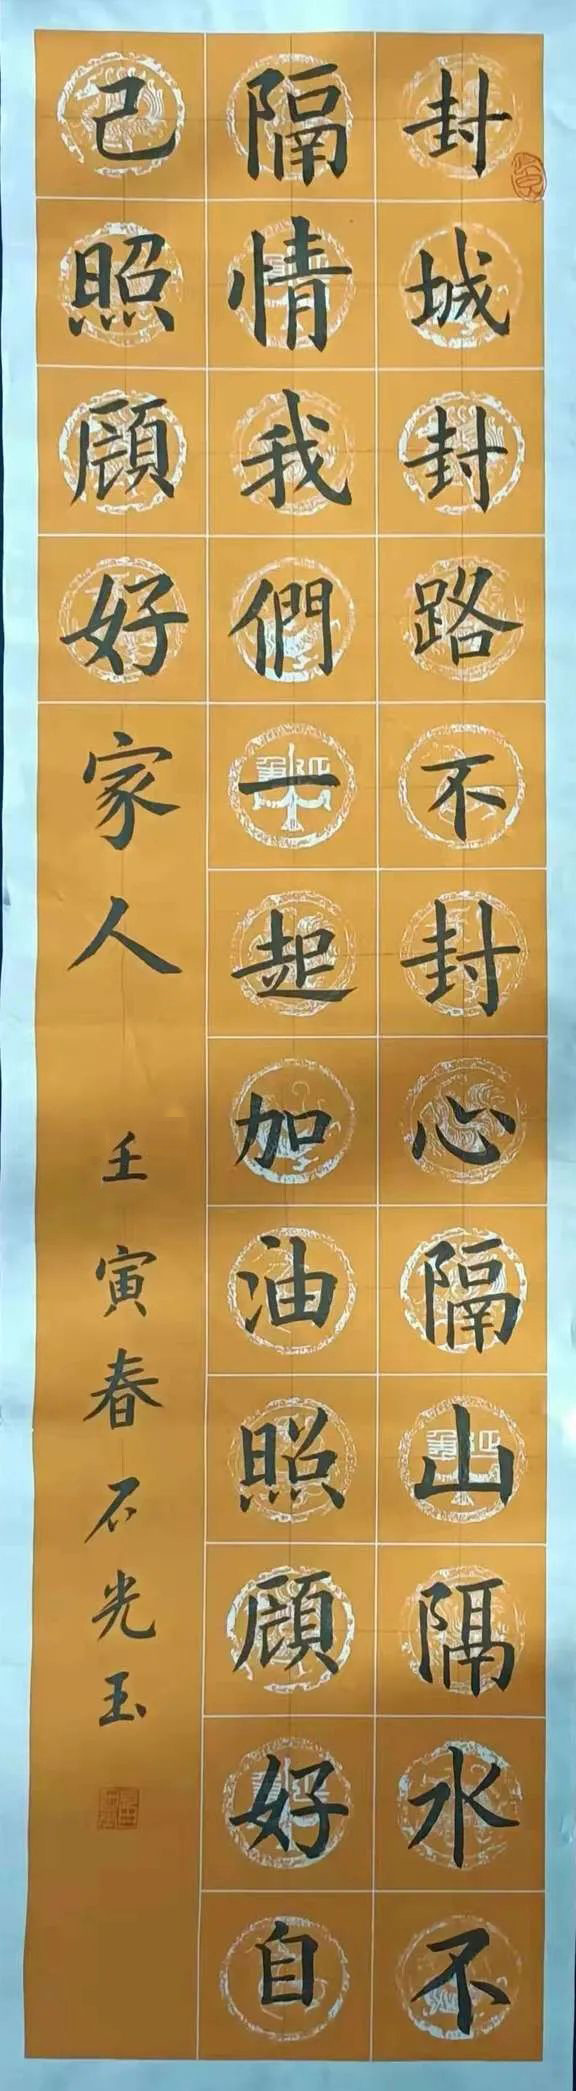 封城封路不封心隔山隔水不
隔情我們一起加油照顧好自
己照顧好家人
壬寅春石光玉